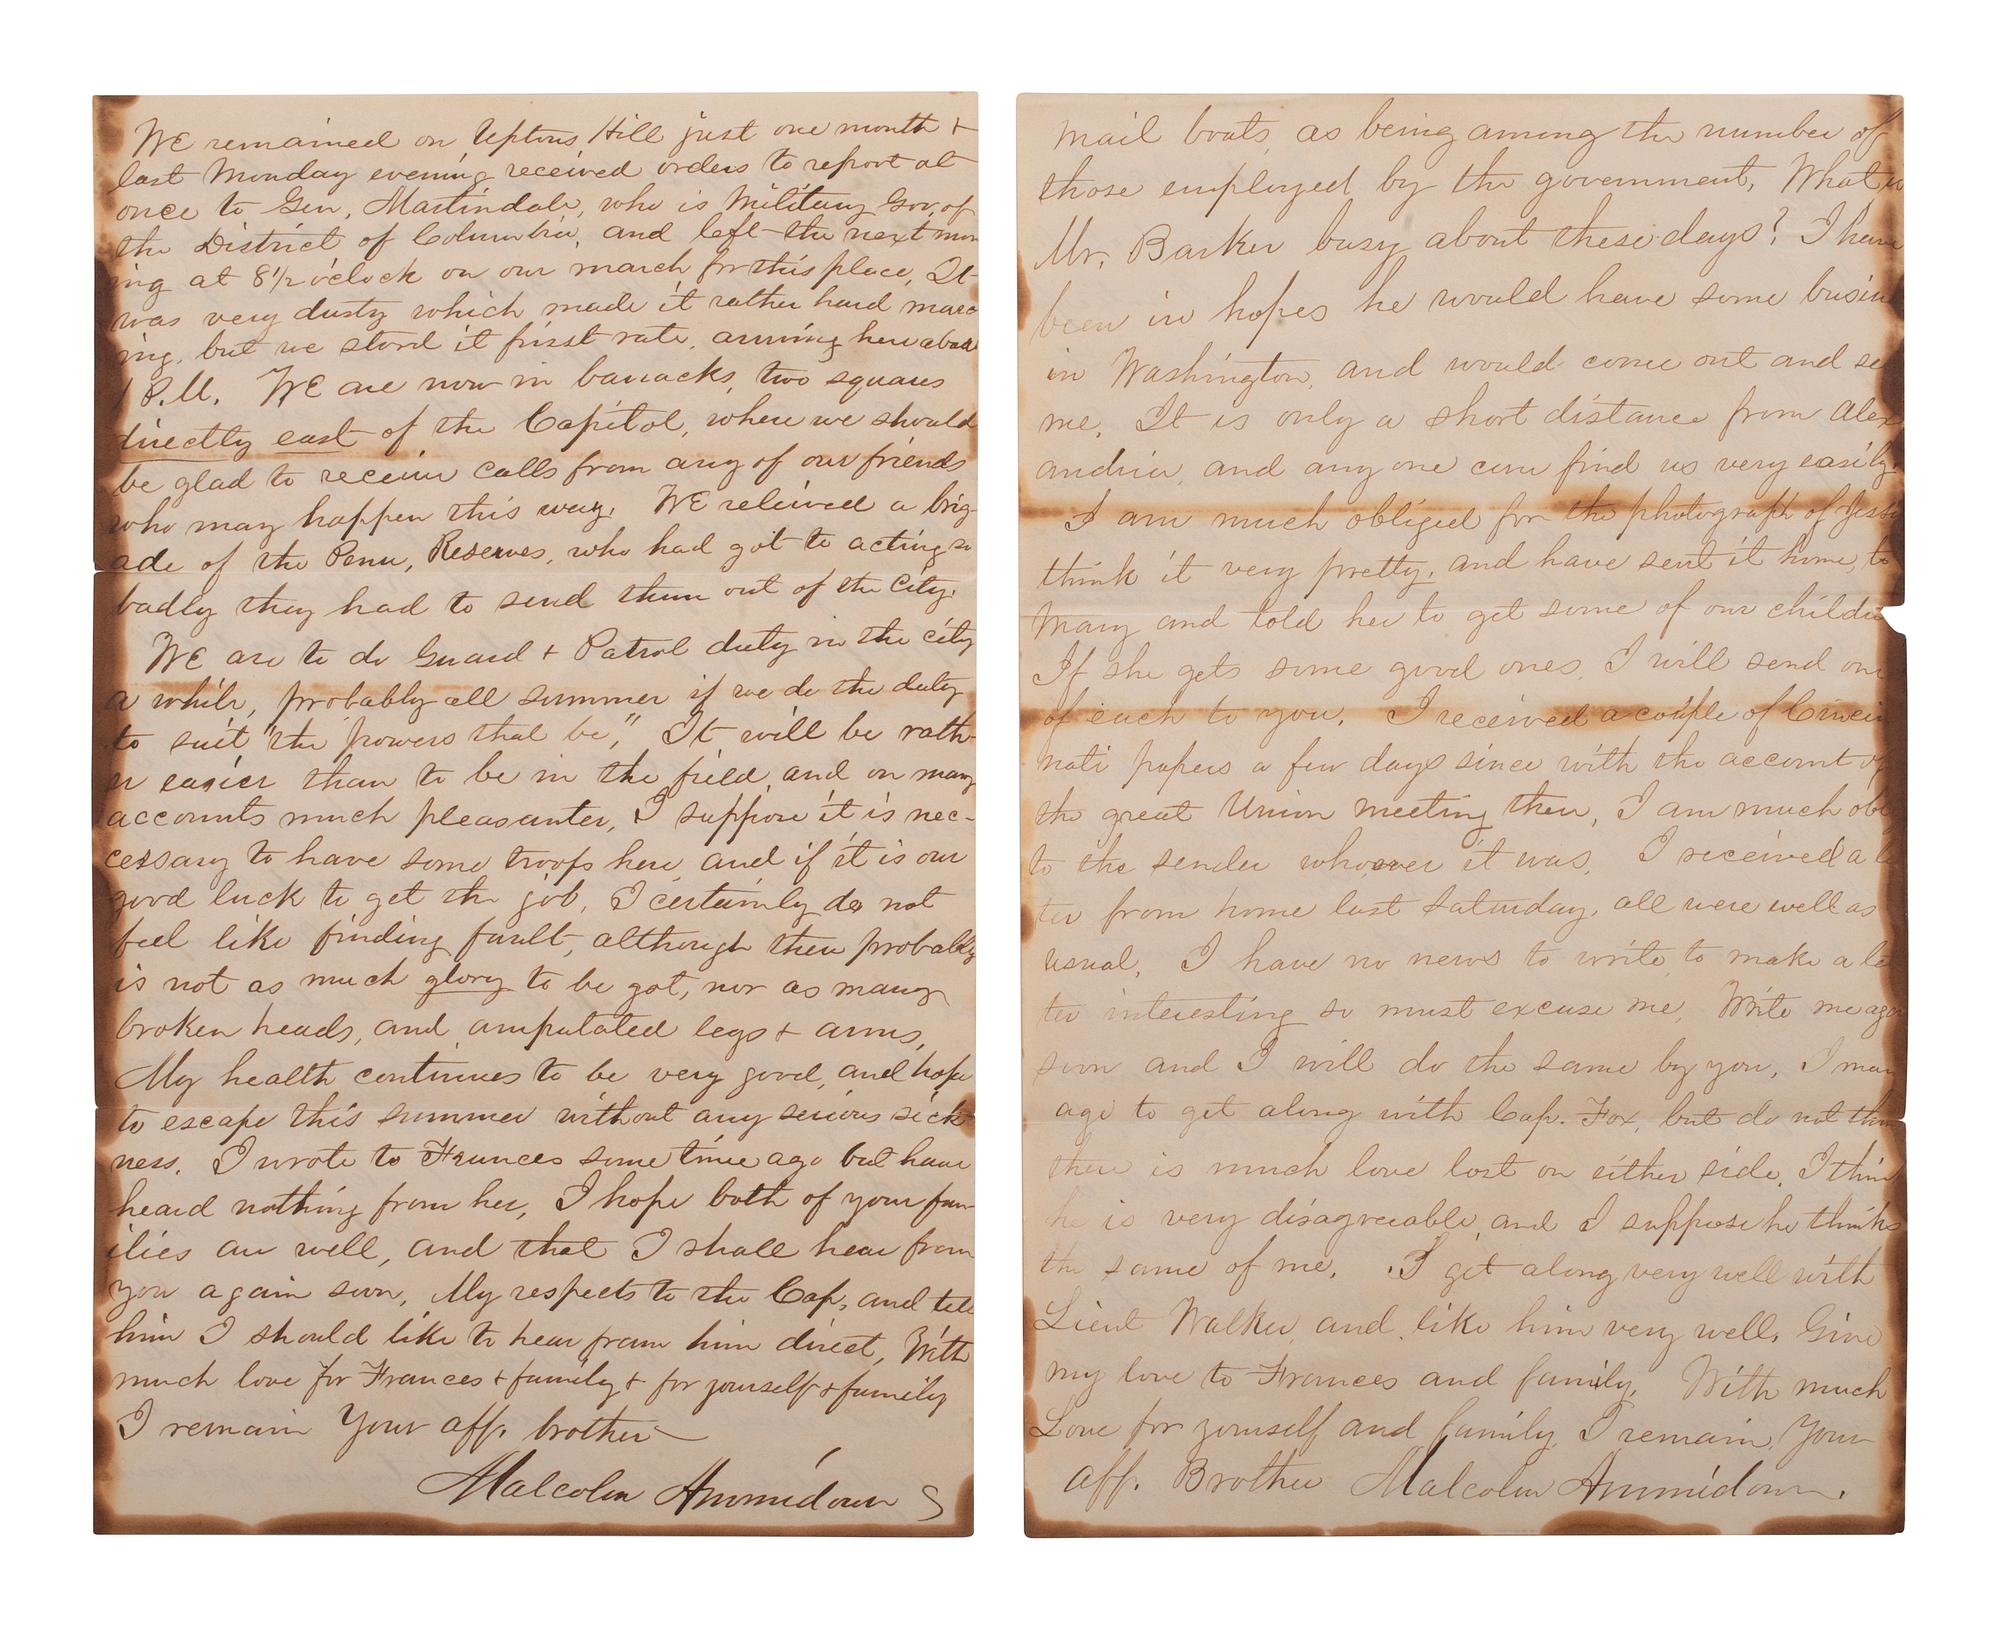 We remained on Uptons Hill just one month +
last Monday evening received orders to report at
once to Gen. Martindale, who is Military Gov. of
the District of Columbia, and left the next morn
ing at 8½ o'clock on our march for this place, It
was very dusty which made it rather hard march
ing, but we stood it first rate, arriving here about
1 P.M. We are now in barracks, two squares
directly east of the Capitol, where we should
be glad to receive calls from any of our friends
who may happen this way. We relieved a brig-
ade of the Penn, Reserves, who had got to acting so
badly they had to send them out of the city.
We are to do Guard + Patrol duty in the city
a while, probably all summer if we do the duty
to suit "the powers that be", It will be rath-
er easier than to be in the field, and on many
accounts much pleasanter, I suppose it is nec-
cessary to have some troops here, and if it is our
good luck to get the job, I certainly do not
feel like finding fault, although there probably
is not as much glory to be got, nor as many
broken heads, and amputated legs + arms,
My health continues to be very good, and hope
to escape this summer without any serious sick-
ness. I wrote to Frances some time ago but have
heard nothing from her, I hope both of your fam-
ilies are well, and that I shall hear from
you again soon, My respects to the Cap, and tell
him I should like to hear from him direct, With
much love for Frances + family + for yourself + family
I remain Your aff. brother
Malcolm Ammidown
mail boats, as being among the number of
those employed by the government, What is
Mr. Barker busy about these days? I have
been in hopes he would have some busin
in Washington, and would come out and see
me, It is only a short distance from Alex
andria, and any one can find us very easily.
I am much obliged for the photograph of
think it very pretty, and have sent it home, to
Mary and told her to get some of our childre
If she gets some good ones, I will send one
of each to you, I received a couple of Cincin
nati papers a few days since with the account of
the great Union meeting there, I am much obl
to the sender whoever it was, I received a le
ter from home last Saturday, all were well as
usual, I have no news to write, to make a let
ter interesting so must excuse me, Write me again
soon and I will do the same by you, I man
age to get along with Cap. Fox, but do not think
there is much love lost on either side, I think
he is very disagreeable, and I suppose he thinks
the same of me, I get along very well with
Lieut Walker, and like him very well, Give
my love to Frances and family, With much
Love for yourself and family, I remain, Your
aff. Brother Malcolm Ammidown.